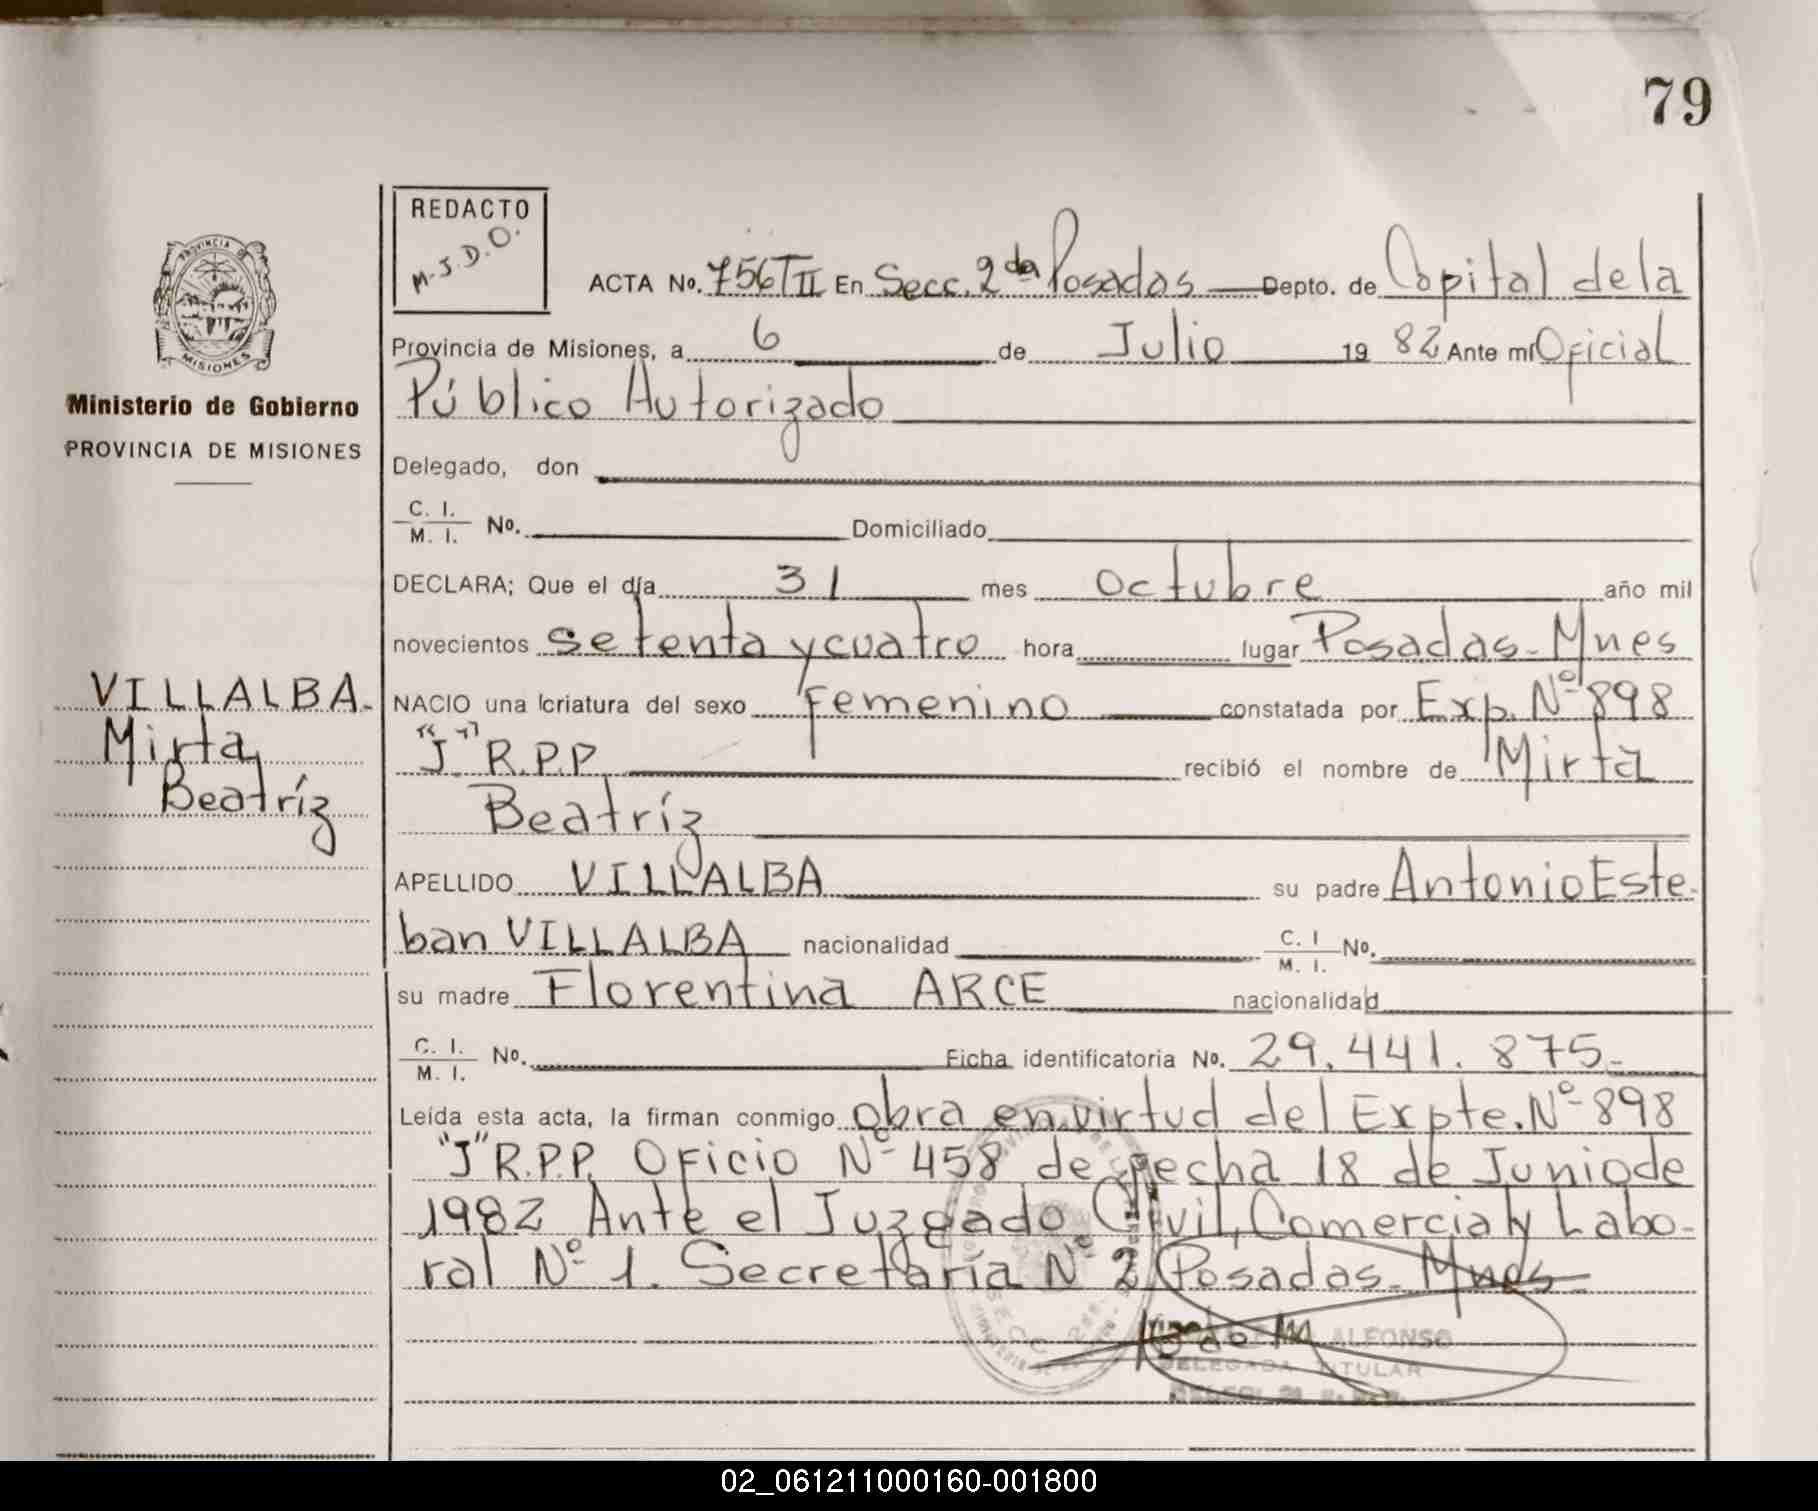 79
REDACTO
M-J.D.O.
ACTA No. 756 T II En Secc. 2da Posadas Depto. de Capital de la
Provincia de Misiones, a 6 de Julio 19 82 Ante mí Oficial
Público Autorizado
PROVINCIA DE
MISIONES
Ministerio de Gobierno
PROVINCIA DE MISIONES
Delegado, don
C. I.
M. I. No. Domiciliado
DECLARA; Que el día 31 mes octubre año mil
novecientos setenta y cuatro hora lugar Posadas-Mnes
VILLALBA-
Mirta
Beatríz
NACIO una criatura del sexo femenino constatada por Exp. Nº 898
"J" R.P.P recibió el nombre de Mirta
Beatríz
APELLIDO VILLALBA su padre Antonio Este-
ban VILLALBA nacionalidad C. I M. I. No.
su madre Florentina ARCE nacionalidad
C. I. M. I. No. Ficha identificatoria No. 29.441.875-
Leída esta acta, la firman conmigo obra en virtud del Expte. Nº 898
"J" R.P.P. Oficio Nº 458 de fecha 18 de Junio de
1982 Ante el Juzgado Civil, Comercial y Labo-
ral Nº 1. Secretaría Nº 2 Posadas-Mnes
ALFONSO
DELEGADA TITULAR
02_061211000160-001800